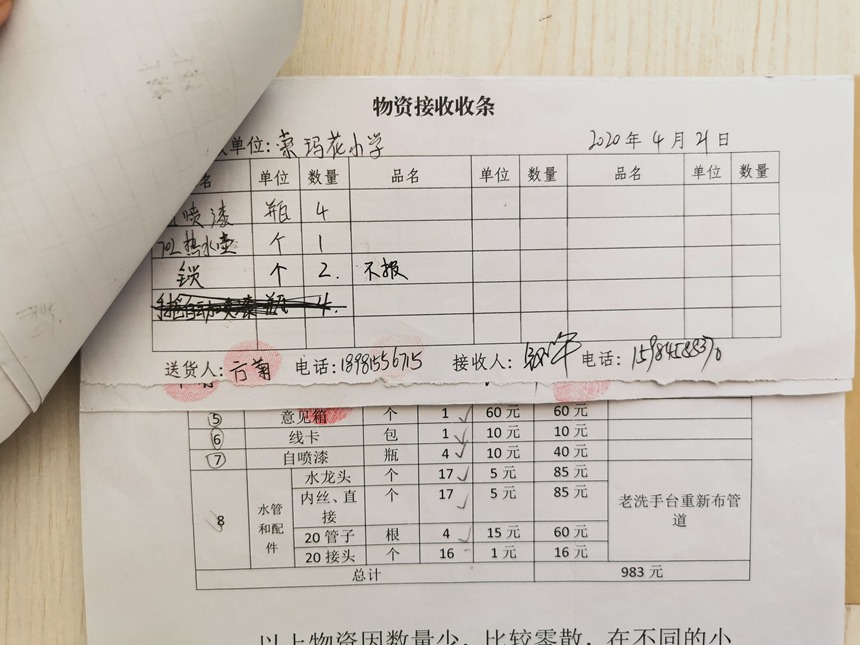 物资接收收条
单位:荣玛花小学 2020年4月21日
名 单位 数量 品名 单位 数量 品名 单位 数量
喷漆 瓶 4
70L热水壶 个 1
锁 个 2. 不报
手摇自动喷漆 瓶 4.
送货人:方菊 电话:18981556715 接收人: 电话:
⑤ 意见箱 个 1 60元 60元
⑥ 线卡 包 1 10元 10元
⑦ 自喷漆 瓶 4 10元 40元
8 水管和配件 水龙头 个 17 5元 85元 老洗手台重新布管道
内丝、直接 个 17 5元 85元
20管子 根 4 15元 60元
20接头 个 16 1元 16元
总计 983元
以上物资因数量少,比较零散,在不同的小